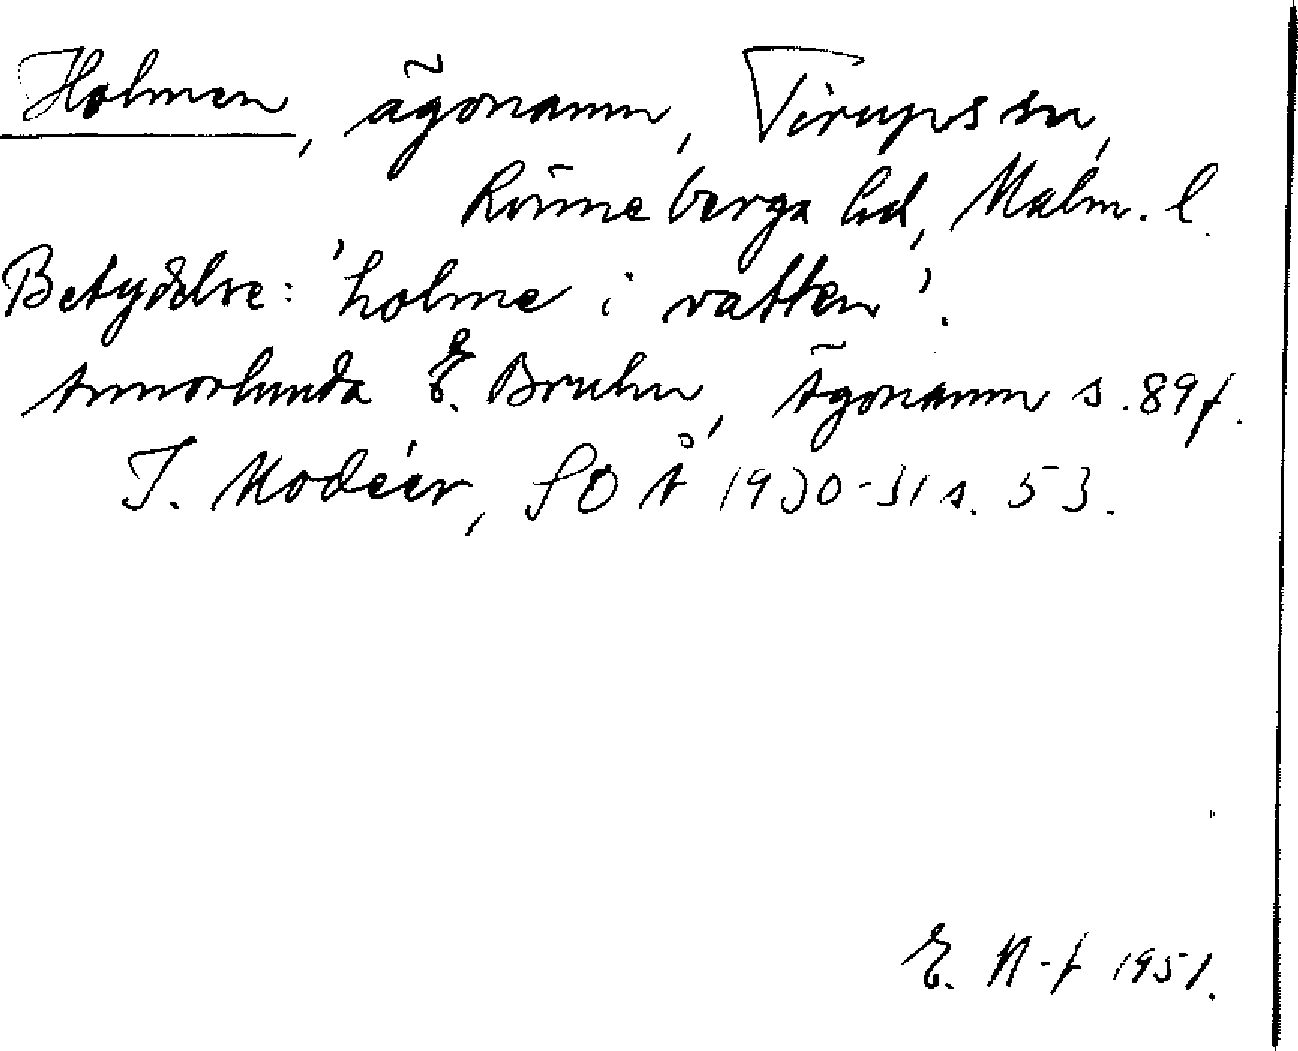 Holmen, ägonamn, Tirups sn,
Rönnebergs hd, Malm. l.
Betydelse: 'holme i vatten'.
Annorlunda E. Bruhn, Ägonamn s. 89 f.
I. Modéer, SOÅ 1930-31 s. 53.
E. N-t 1951.